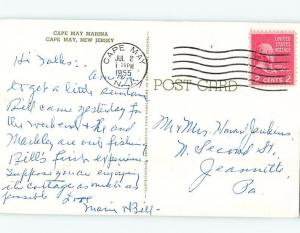 CAPE MAY MARINA
CAPE MAY, NEW JERSEY
Hi Folks:
to get a little sunburn
Bill came yesterday for
the weekend & he and
are out fishing
Bill's first experience
Suppose you are enjoying
the cottage as much as
possible Love
Marie & Bill
CAPE MAY
JUL 2
1 PM
1955
N.J.
POST CARD
UNITED STATES POSTAGE
2 CENTS 2
Mr & Mrs. Howard Jenkins
N. Second St.
Jeannette
Pa.